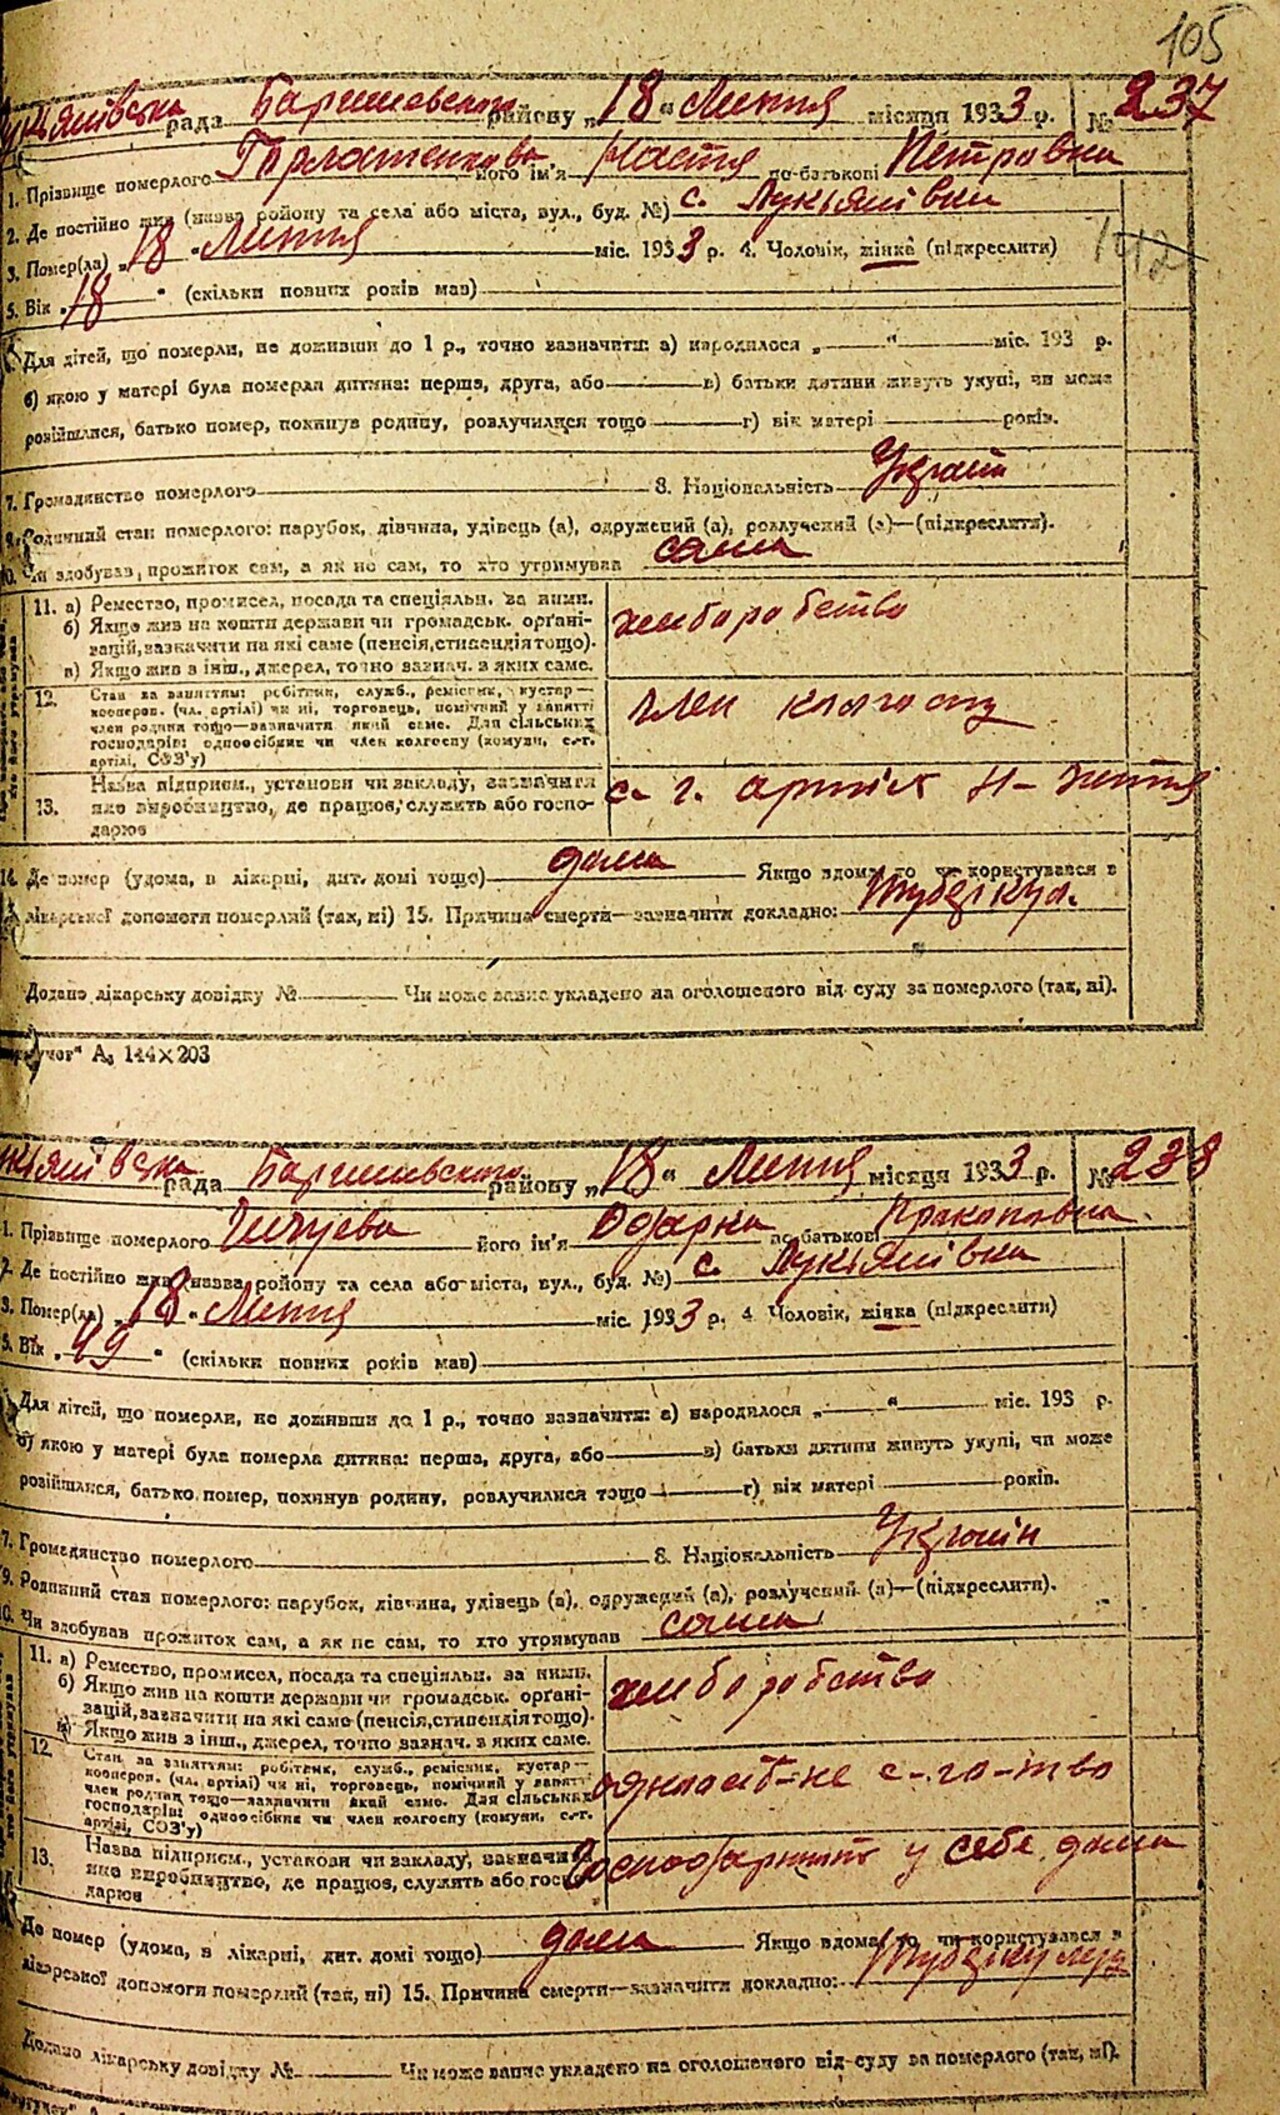 105
рада Баришевського району „18“ Липня місяця 1933 р. № 237
1. Прізвище померлого його ім'я Настя по-батькові Петровна
2. Де постійно жив (назва району та села або міста, вул., буд. №) с. Лукьянівки
3. Помер(ла) „18“ Липня міс. 1933 р. 4. Чоловік, жінка (підкреслити)
142
5. Вік „18“ (скільки повних років мав)
Для дітей, що померли, не доживши до 1 р., точно зазначити: а) народилося „ “ міс. 193 р.
б) якою у матері була померла дитина: перша, друга, або в) батьки дитини живуть укупі, чи може
розійшлися, батько помер, покинув родину, розлучилися тощо г) вік матері років.
7. Громадянство померлого 8. Національність Україн
9. Родинний стан померлого: парубок, дівчина, удівець (а), одружений (а), розлучений (а)—(підкреслити).
10. Чи здобував прожиток сам, а як не сам, то хто утримував сама
11. а) Ремество, промисел, посада та спеціяльн. за ними.
б) Якщо жив на кошти держави чи громадськ. орґані-
зацій, зазначити на які саме (пенсія, стипендія тощо).
в) Якщо жив з інш., джерел, точно зазнач. з яких саме.
хліборобство
12. Стан за заняттям: робітник, служб., ремісник, кустар—
кооперов. (чл. артілі) чи ні, торговець, помічний у занятті
член родини тощо—зазначити який саме. Для сільських
господарів: одноосібник чи член колгоспу (комуни, с.-г.
артілі, СОЗ'у)
член колгоспу
13. Назва підприєм., установи чи закладу, зазначити
яке виробництво, де працює, служить або госпо-
дарює
с. г. артіл Н-життя
14. Де помер (удома, в лікарні, дит. домі тощо) дома Якщо вдома, то чи користувався з
лікарської допомоги померлий (так, ні) 15. Причина смерти—зазначити докладно: туберкул.
Додано лікарську довідку № Чи може запис укладено на оголошеного від суду за померлого (так, ні).
А₅ 144×203
рада Баришевського району „18“ Липня місяця 1933 р. № 238
1. Прізвище померлого його ім'я Одарка по батькові Пракоповна
2. Де постійно жив (назва району та села або міста, вул., буд. №) с. Лукьянівки
3. Помер(ла) „18“ Липня міс. 1933 р. 4. Чоловік, жінка (підкреслити)
5. Вік „49“ (скільки повних років мав)
Для дітей, що померли, не доживши до 1 р., точно зазначити: а) народилося „ “ міс. 193 р.
б) якою у матері була померла дитина: перша, друга, або в) батьки дитини живуть укупі, чи може
розійшлися, батько помер, покинув родину, розлучилися тощо г) вік матері років.
7. Громадянство померлого 8. Національність Україін
9. Родинний стан померлого: парубок, дівчина, удівець (а), одружений (а), розлучений (а)—(підкреслити).
10. Чи здобував прожиток сам, а як не сам, то хто утримував сама
11. а) Ремество, промисел, посада та спеціяльн. за ними.
б) Якщо жив на кошти держави чи громадськ. орґані-
зацій, зазначити на які саме (пенсія, стипендія тощо).
в) Якщо жив з інш., джерел, точно зазнач. з яких саме.
хліборобство
12. Стан за заняттям: робітник, служб., ремісник, кустар—
кооперов. (чл. артілі) чи ні, торговець, помічний у занятті
член родини тощо—зазначити який саме. Для сільських
господарів: одноосібник чи член колгоспу (комуни, с.-г.
артілі, СОЗ'у)
одноосіб-не с-го-тво
13. Назва підприєм., установи чи закладу, зазначити
яке виробництво, де працює, служить або госпо-
дарює
у себе дома
Де помер (удома, в лікарні, дит. домі тощо) дома Якщо вдома, то чи користувався з
лікарської допомоги померлий (так, ні) 15. Причина смерти—зазначити докладно:
Додано лікарську довідку № Чи може запис укладено на оголошеного від суду за померлого (так, ні).